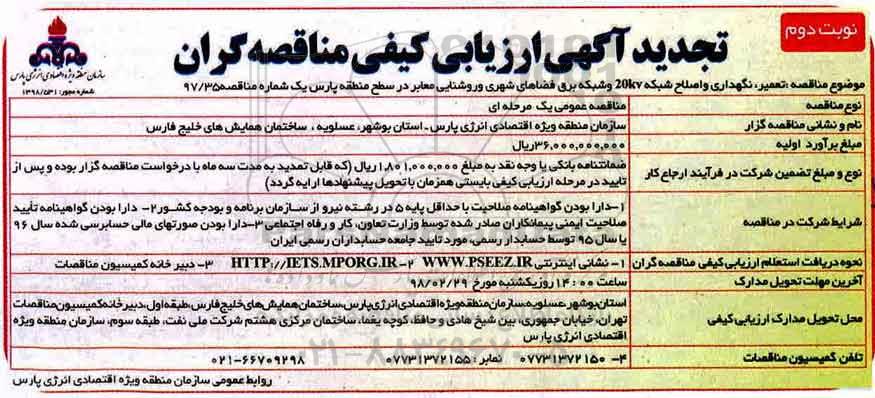 نوبت دوم
تجدید آگهی ارزیابی کیفی مناقصه گران
سازمان منطقه ویژه اقتصادی انرژی پارس
شماره مجوز: ۱۳۹۸/۵۳۱
موضوع مناقصه: تعمیر، نگهداری و اصلاح شبکه 20kv وشبکه برق فضاهای شهری وروشنایی معابر در سطح منطقه پارس یک شماره مناقصه ۹۷/۳۵
نوع مناقصه
مناقصه عمومی یک مرحله ای
نام و نشانی مناقصه گزار
سازمان منطقه ویژه اقتصادی انرژی پارس - استان بوشهر، عسلویه، ساختمان همایش های خلیج فارس
مبلغ برآورد اولیه
۳۶,۰۰۰,۰۰۰,۰۰۰ریال
نوع و مبلغ تضمین شرکت در فرآیند ارجاع کار
ضمانتنامه بانکی یا وجه نقد به مبلغ ۱,۸۰۱,۰۰۰,۰۰۰ ریال (که قابل تمدید به مدت سه ماه با درخواست مناقصه گزار بوده و پس از
تایید در مرحله ارزیابی کیفی بایستی همزمان با تحویل پیشنهادها ارایه گردد)
شرایط شرکت در مناقصه
۱-دارا بودن گواهینامه صلاحیت با حداقل پایه ۵ در رشته نیرو از سازمان برنامه و بودجه کشور ۲- دارا بودن گواهینامه تأیید
صلاحیت ایمنی پیمانکاران صادر شده توسط وزارت تعاون، کار و رفاه اجتماعی ۳-دارا بودن صورتهای مالی حسابرسی شده سال ۹۶
یا سال ۹۵ توسط حسابدار رسمی، مورد تایید جامعه حسابداران رسمی ایران
نحوه دریافت استعلام ارزیابی کیفی مناقصه گران
۱- نشانی اینترنتی WWW.PSEEZ.IR ۲- HTTP://IETS.MPORG.IR ۳- دبیر خانه کمیسیون مناقصات
آخرین مهلت تحویل مدارک
ساعت ۰۰ : ۱۴ روز یکشنبه مورخ ۹۸/۰۲/۲۹
محل تحویل مدارک ارزیابی کیفی
استان بوشهر، عسلویه، سازمان منطقه ویژه اقتصادی انرژی پارس، ساختمان همایش های خلیج فارس، طبقه اول، دبیر خانه کمیسیون مناقصات
تهران، خیابان جمهوری، بین شیخ هادی و حافظ، کوچه یغما، ساختمان مرکزی هشتم شرکت ملی نفت، طبقه سوم، سازمان منطقه ویژه
اقتصادی انرژی پارس
تلفن کمیسیون مناقصات
۴- ۰۷۷۳۱۳۷۲۱۵۰ نمابر: ۰۷۷۳۱۳۷۲۱۵۵ ۰۲۱-۶۶۷۰۹۲۹۸
روابط عمومی سازمان منطقه ویژه اقتصادی انرژی پارس